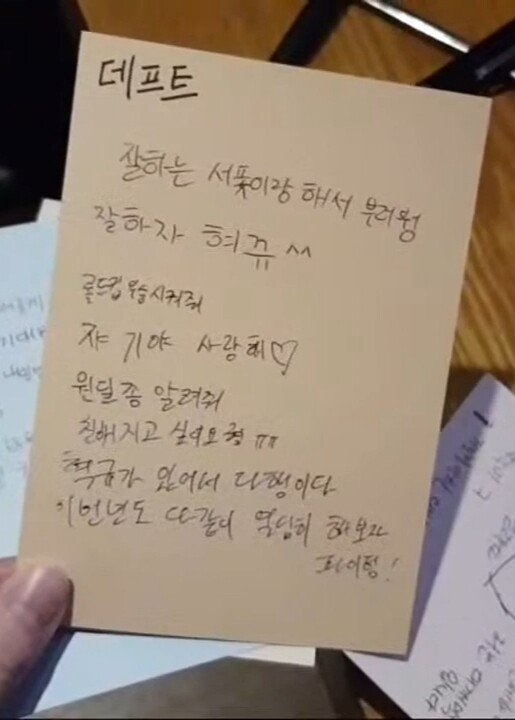 데프트
잘하는 서폿이랑 해서 부러웡
잘하자 혀뀨 ^^
롤드컵 우승시켜줘
쟈기야 사랑해♡
원딜좀 알려줘
친해지고 싶어요 형 ㅠㅠ
혁규가 있어서 다행이다
이번년도 똑같이 열심히 해보자
파이팅!